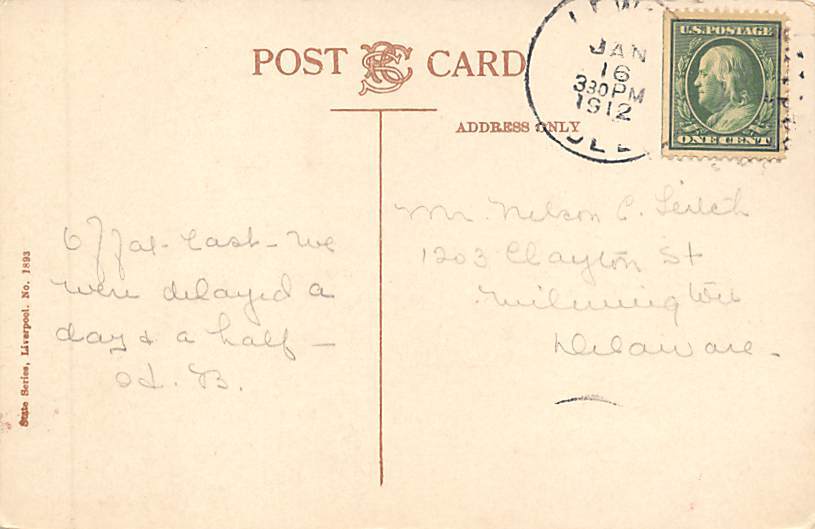 POST CARD
ADDRESS ONLY
JAN
16
330PM
1912
DEL
U.S. POSTAGE
ONE CENT
at last - We
were delayed a
day & a half -
B.
Mr. Nelson C.
1203 Clayton St
Wilmington
Delaware.
State Series, Liverpool. No. 1893